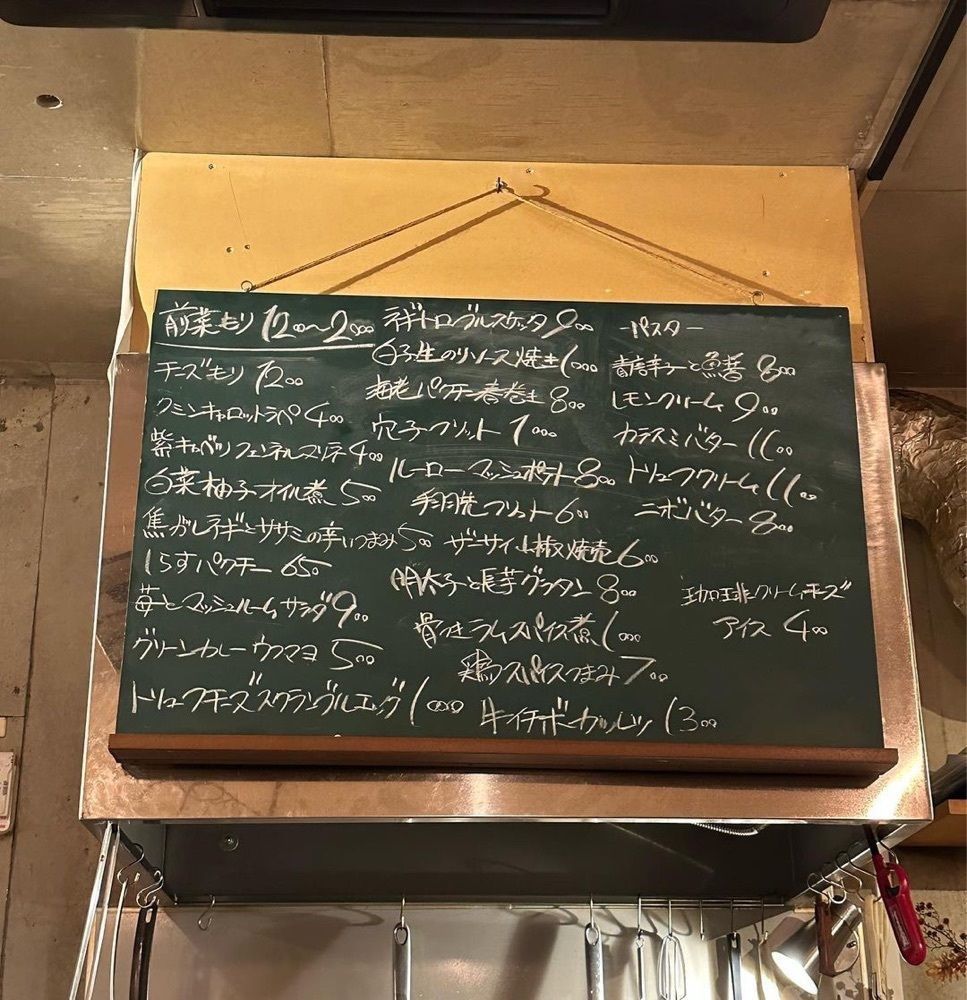 前菜もり 1200〜2000
チーズもり 1200
クミンキャロットラペ 400
紫キャベツフェンネルマリネ 400
白菜柚子オイル煮 500
焦ガしネギとササミの辛いつまみ 500
しらすパクチー 650
苺とマッシュルームサラダ 900
グリーンカレーウフマヨ 500
トリュフチーズスクランブルエッグ 1000
ネギトロブルスケッタ 900
白子生のりソース焼き 1000
海老パクチー春巻き 800
穴子フリット 1000
ルーローマッシュポテト 800
手羽先フリット 600
ザーサイ山椒焼売 600
明太子と長芋グラタン 800
骨付ラムスパイス煮 1000
鶏スパイスつまみ 700
牛イチボーカツレツ 1300
パスター
青唐辛子と魚醤 800
レモンクリーム 900
カラスミバター 1100
トリュフクリーム 1100
ニボシバター 800
珈琲クリームチーズ
アイス 400